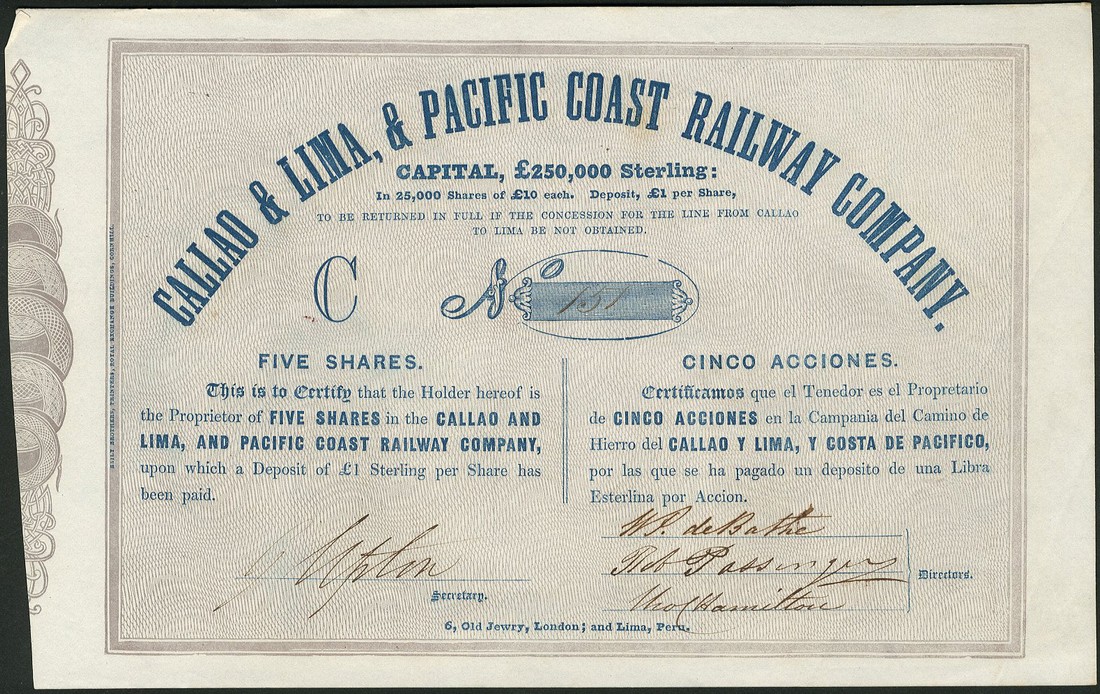 CALLAO & LIMA, & PACIFIC COAST RAILWAY COMPANY.
CAPITAL, £250,000 Sterling:
In 25,000 Shares of £10 each. Deposit, £1 per Share,
TO BE RETURNED IN FULL IF THE CONCESSION FOR THE LINE FROM CALLAO
TO LIMA BE NOT OBTAINED.
C No 151
FIVE SHARES.
This is to Certify that the Holder hereof is
the Proprietor of FIVE SHARES in the CALLAO AND
LIMA, AND PACIFIC COAST RAILWAY COMPANY,
upon which a Deposit of £1 Sterling per Share has
been paid.
CINCO ACCIONES.
Certificamos que el Tenedor es el Propretario
de CINCO ACCIONES en la Campania del Camino de
Hierro del CALLAO Y LIMA, Y COSTA DE PACIFICO,
por las que se ha pagado un deposito de una Libra
Esterlina por Accion.
Upton
Secretary.
W. P. de Bathe
Rob Passenger
Tho C Hamilton
Directors.
6, Old Jewry, London; and Lima, Peru.
BROTHERS, PRINTERS, ROYAL EXCHANGE BUILDINGS, CORNHILL.